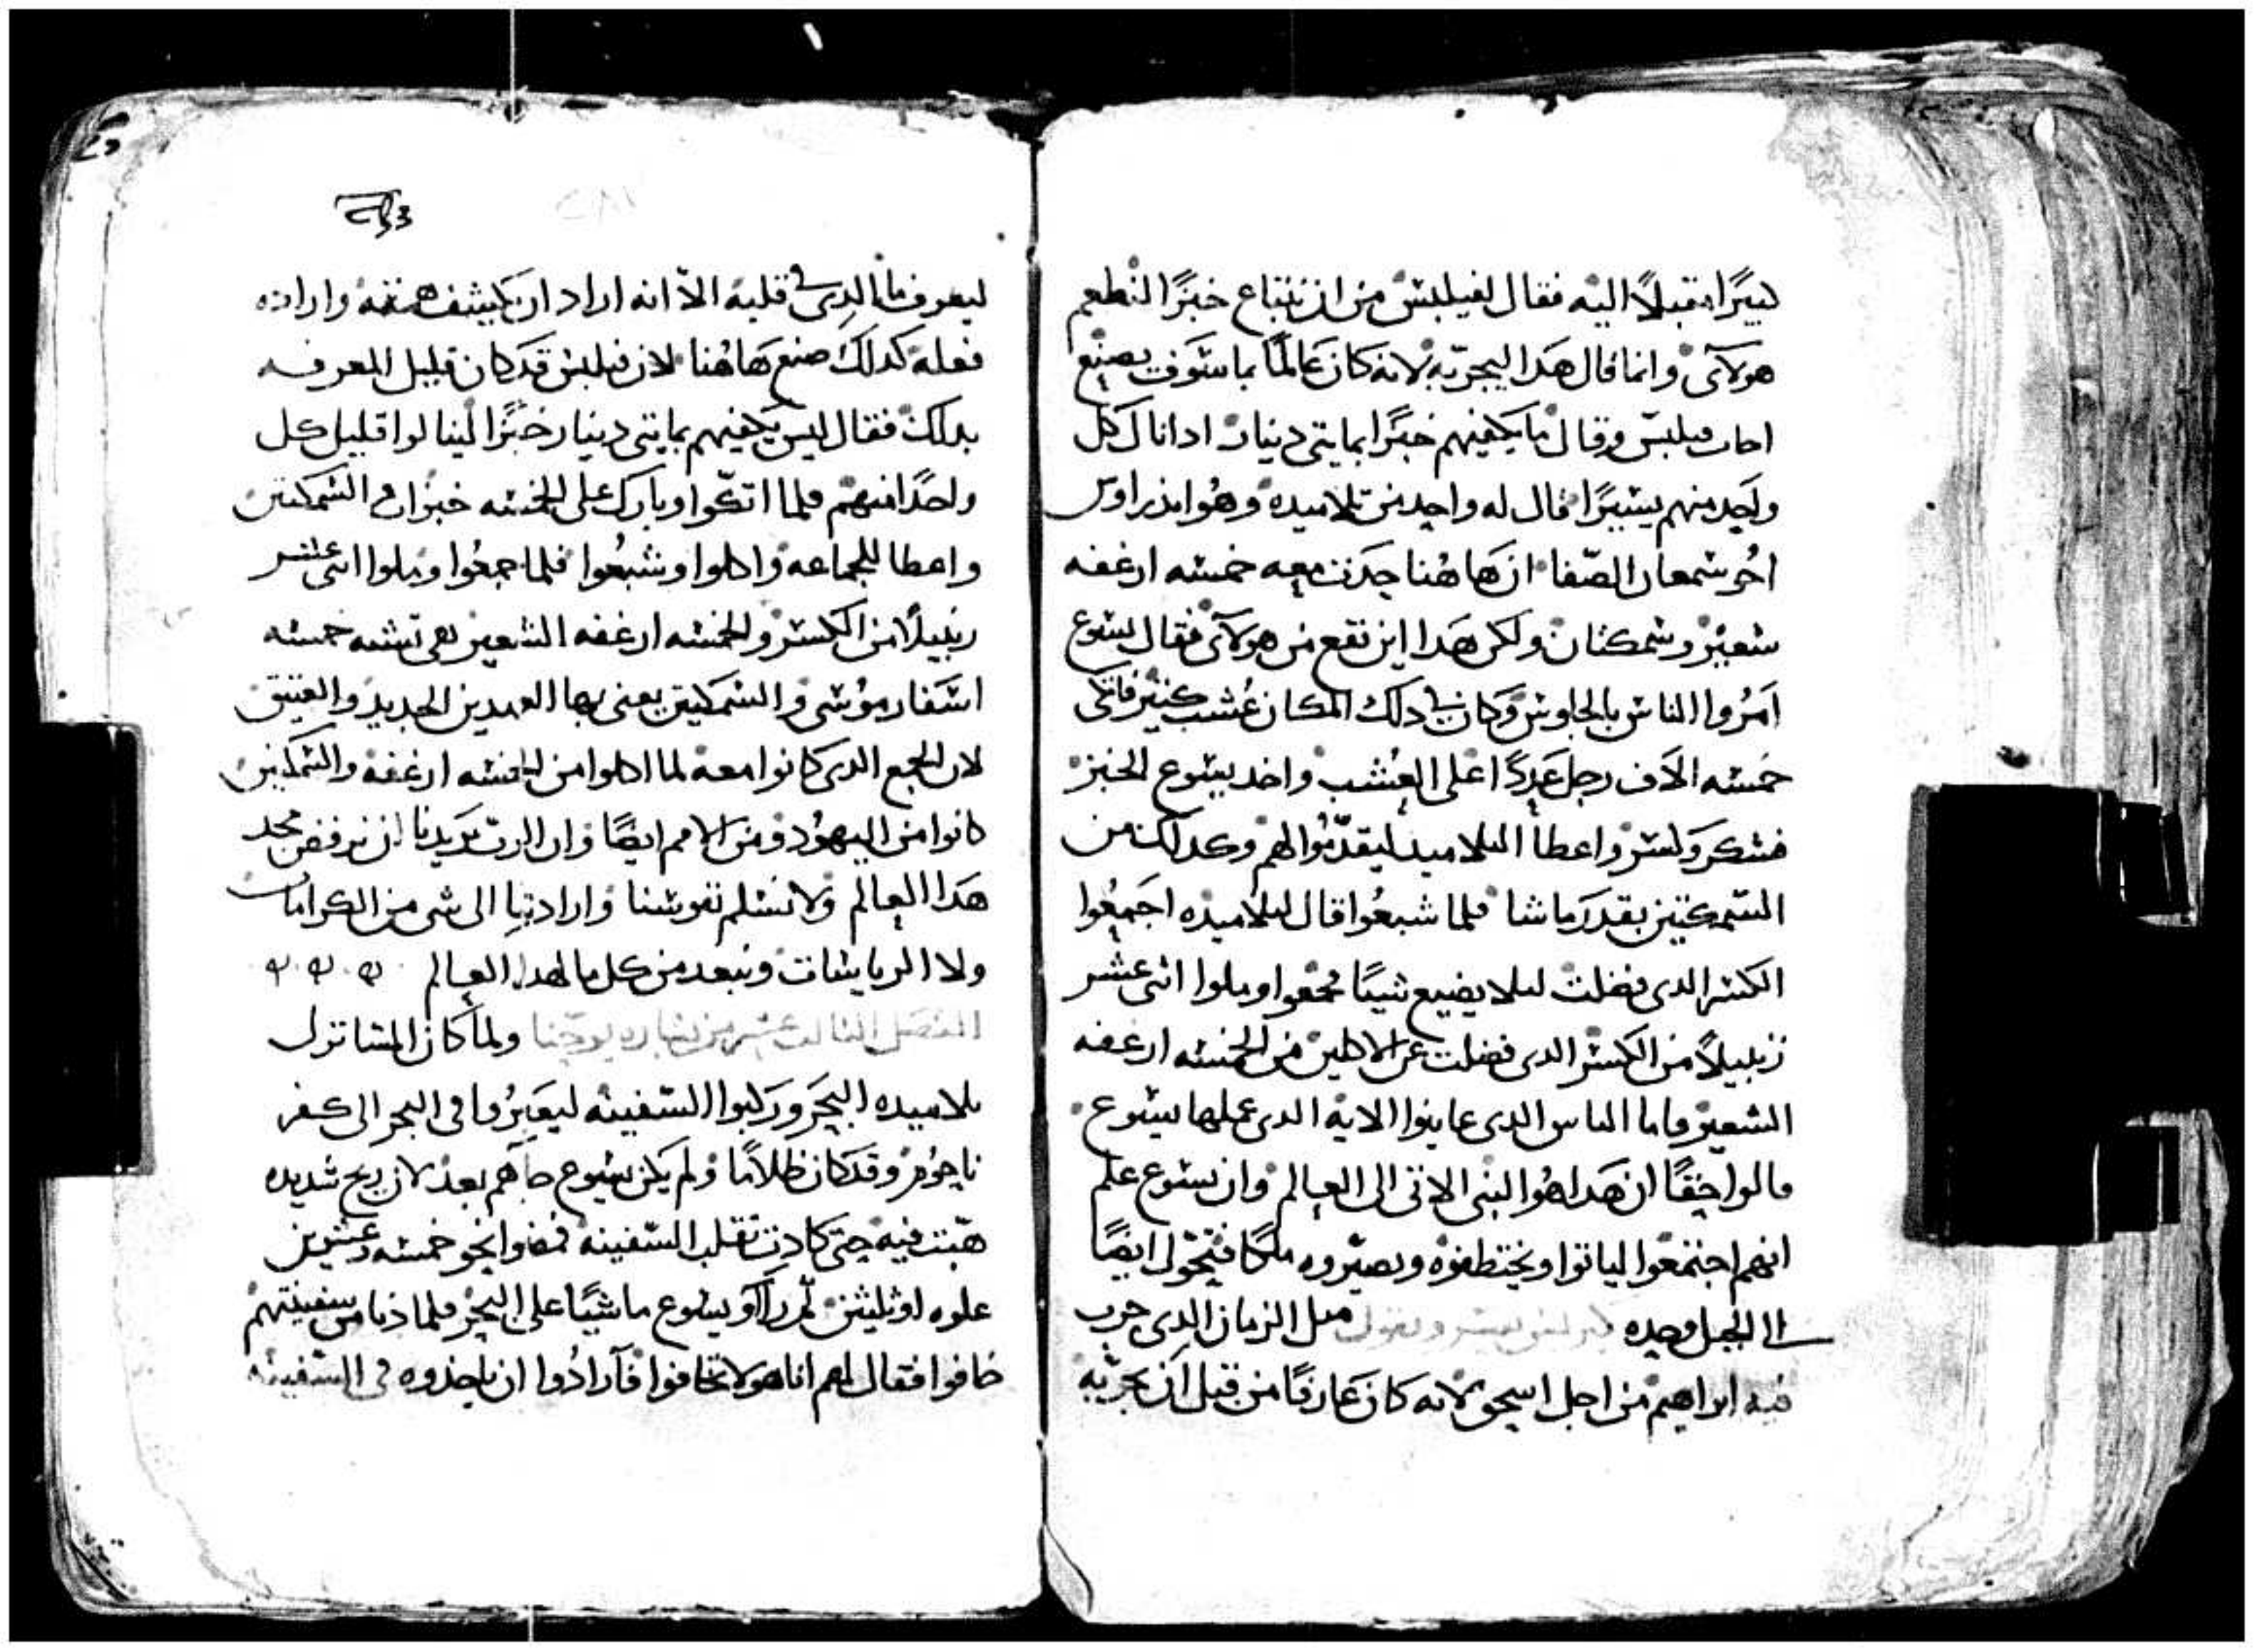 كبيرًا مقبلاً اليه فقال لفيلبس من اين نبتاع خبزًا لنطعم
هولآى وانما قال هدا ليجربه لانه كان عالمًا بما سوف يصنع
اجاب فيلبس وقال ما يكفيهم خبزًا بمايتى دينار ادا نال كل
واحد منهم يسيرًا قال له واحد من تلاميده وهو اندراوس
اخو شمعان الصفا ان هاهنا حدث معه خمسه ارغفه
شعير وسمكتان ولكن هدا اين تقع من هولآى فقال يسوع
امروا الناس بالجلوس وكان فى دلك المكان عشب كتير فاتكى
خمسه الاف رجل عددًا على العشب واخد يسوع الخبز
فشكر وكسر واعطا التلاميد ليقدموا لهم وكدلك من
السمكتين بقدر ما شا فلما شبعوا قال لتلاميده اجمعوا
الكسر الدى فضلت ليلا يضيع شيئًا فجمعوا وملوا اتنى عشر
زنبيلاً من الكسر الدى فضلت عن الاكلين من الخمسه ارغفه
الشعير فاما الناس الدى عاينوا الايه الدى عملها يسوع
قالوا حقًا ان هدا هو النبى الاتى الى العالم وان يسوع علم
انهم اجتمعوا لياتوا ويختطفوه ويصيروه ملكًا فتحول ايضًا
الى الجبل وحده كيرلس يفسر ويقول متل الزمان الدى جرب
فيه ابراهيم من اجل اسحق لانه كان عارفًا من قبل ان يجربه
ليعرف ما الدى فى قلبه الاّ انه اراد ان يكشف همته وارادته
فعله كدلك صنع هاهنا لان فيلبس قد كان قليل المعرفه
بدلك فقال ليس يكفيهم بمايتى دينار خبزًا لينالوا قليل كل
واحدًا منهم فلما اتكوا وبارك على الخمسه خبزات والسمكتين
واعطا للجماعه واكلوا وشبعوا فلما جمعوا وملوا اتنى عشر
زنبيلاً من الكسر والخمسه ارغفه الشعير هى تشبه خمسه
اسفار موسى والسمكتين يعنى بها العهدين الجديد والعتيق
لان الجمع الدى كانوا معه لما اكلوا من الخمسه ارغفه والسمكتين
كانوا من اليهود ومن الامم ايضًا وان الرب يريدنا ان نرفض مجد
هدا العالم ولا نسلم نفوسنا وارادتنا الى شى من الكرامات
ولا الرياسات ونبعد من كل ما لهدا العالم
الفصل التالت عشر من بشاره يوحنا ولما كان المسا نزل
تلاميده البحر وركبوا السفينه ليعبروا فى البحر الى كفر
ناحوم وقد كان ظلامًا ولم يكن يسوع جاهم بعد لان ريح شديده
هبت فيه حتى كادت تقلب السفينه فمضوا نحو خمسه وعشرين
غلوه او ثلثين تم راوا يسوع ماشيًا على البحر فلما دنا من سفينتهم
خافوا فقال لهم انا هو لا تخافوا فارادوا ان ياخدوه فى السفينه